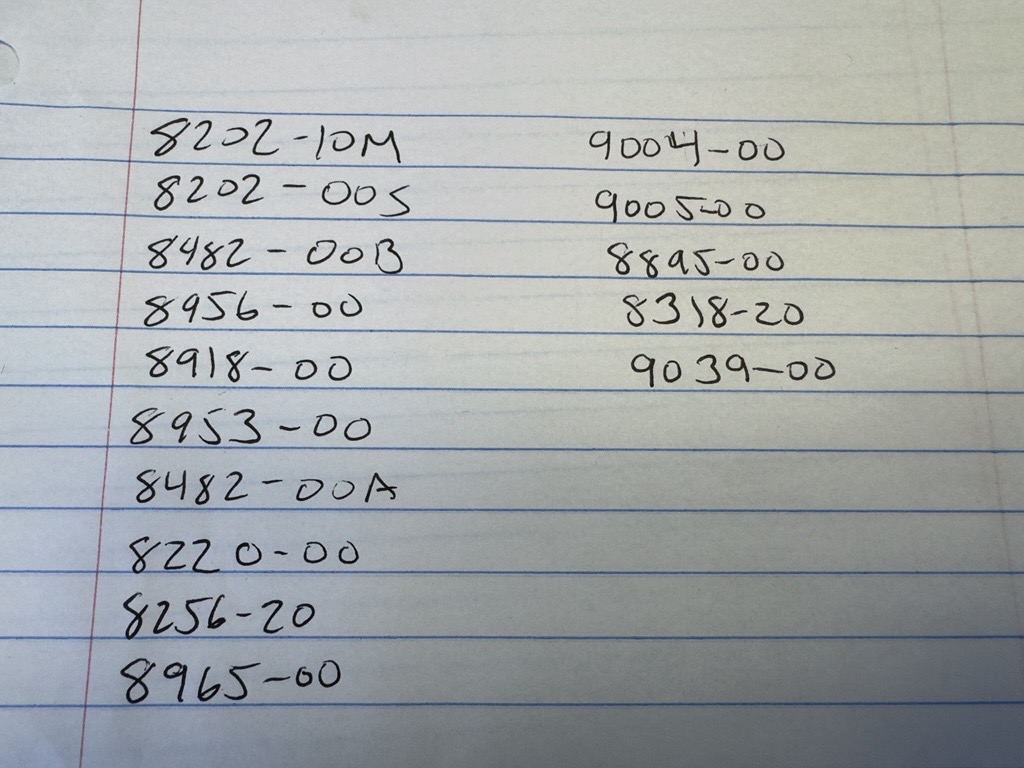 8202-10M
8202-00S
8482-00B
8956-00
8918-00
8953-00
8482-00A
8220-00
8256-20
8965-00
9004-00
9005-00
8895-00
8318-20
9039-00